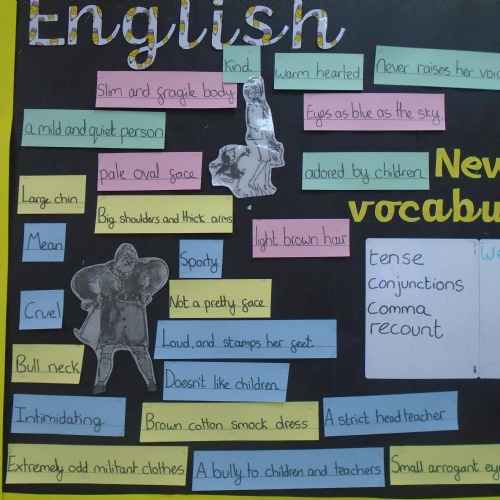 English
Kind
warm hearted
Never raises her voic
Slim and fragile body
Eyes as blue as the sky
a mild and quiet person
pale oval face
adored by children
New
vocabu
Large chin
Big shoulders and thick arms
light brown hair
Mean
Sporty
tense
conjunctions
comma
recount
Not a pretty face
Cruel
Loud, and stamps her feet
Bull neck
Doesn't like children
Intimidating
Brown cotton smock dress
A strict headteacher
Extremely odd militant clothes
A bully to children and teachers
Small arrogant eye